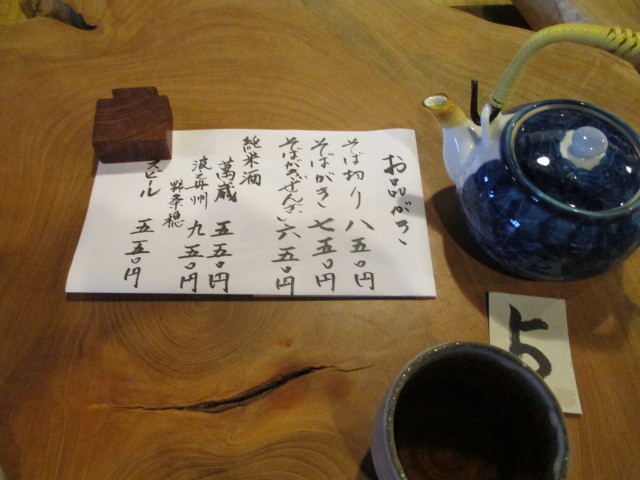 お品がき
そば切り 八五〇円
そばがき 七五〇円
そばがきぜんざい 六五〇円
純米酒
萬蔵 五五〇円
丹州 野条穂 九五〇円
ビール 五五〇円
5